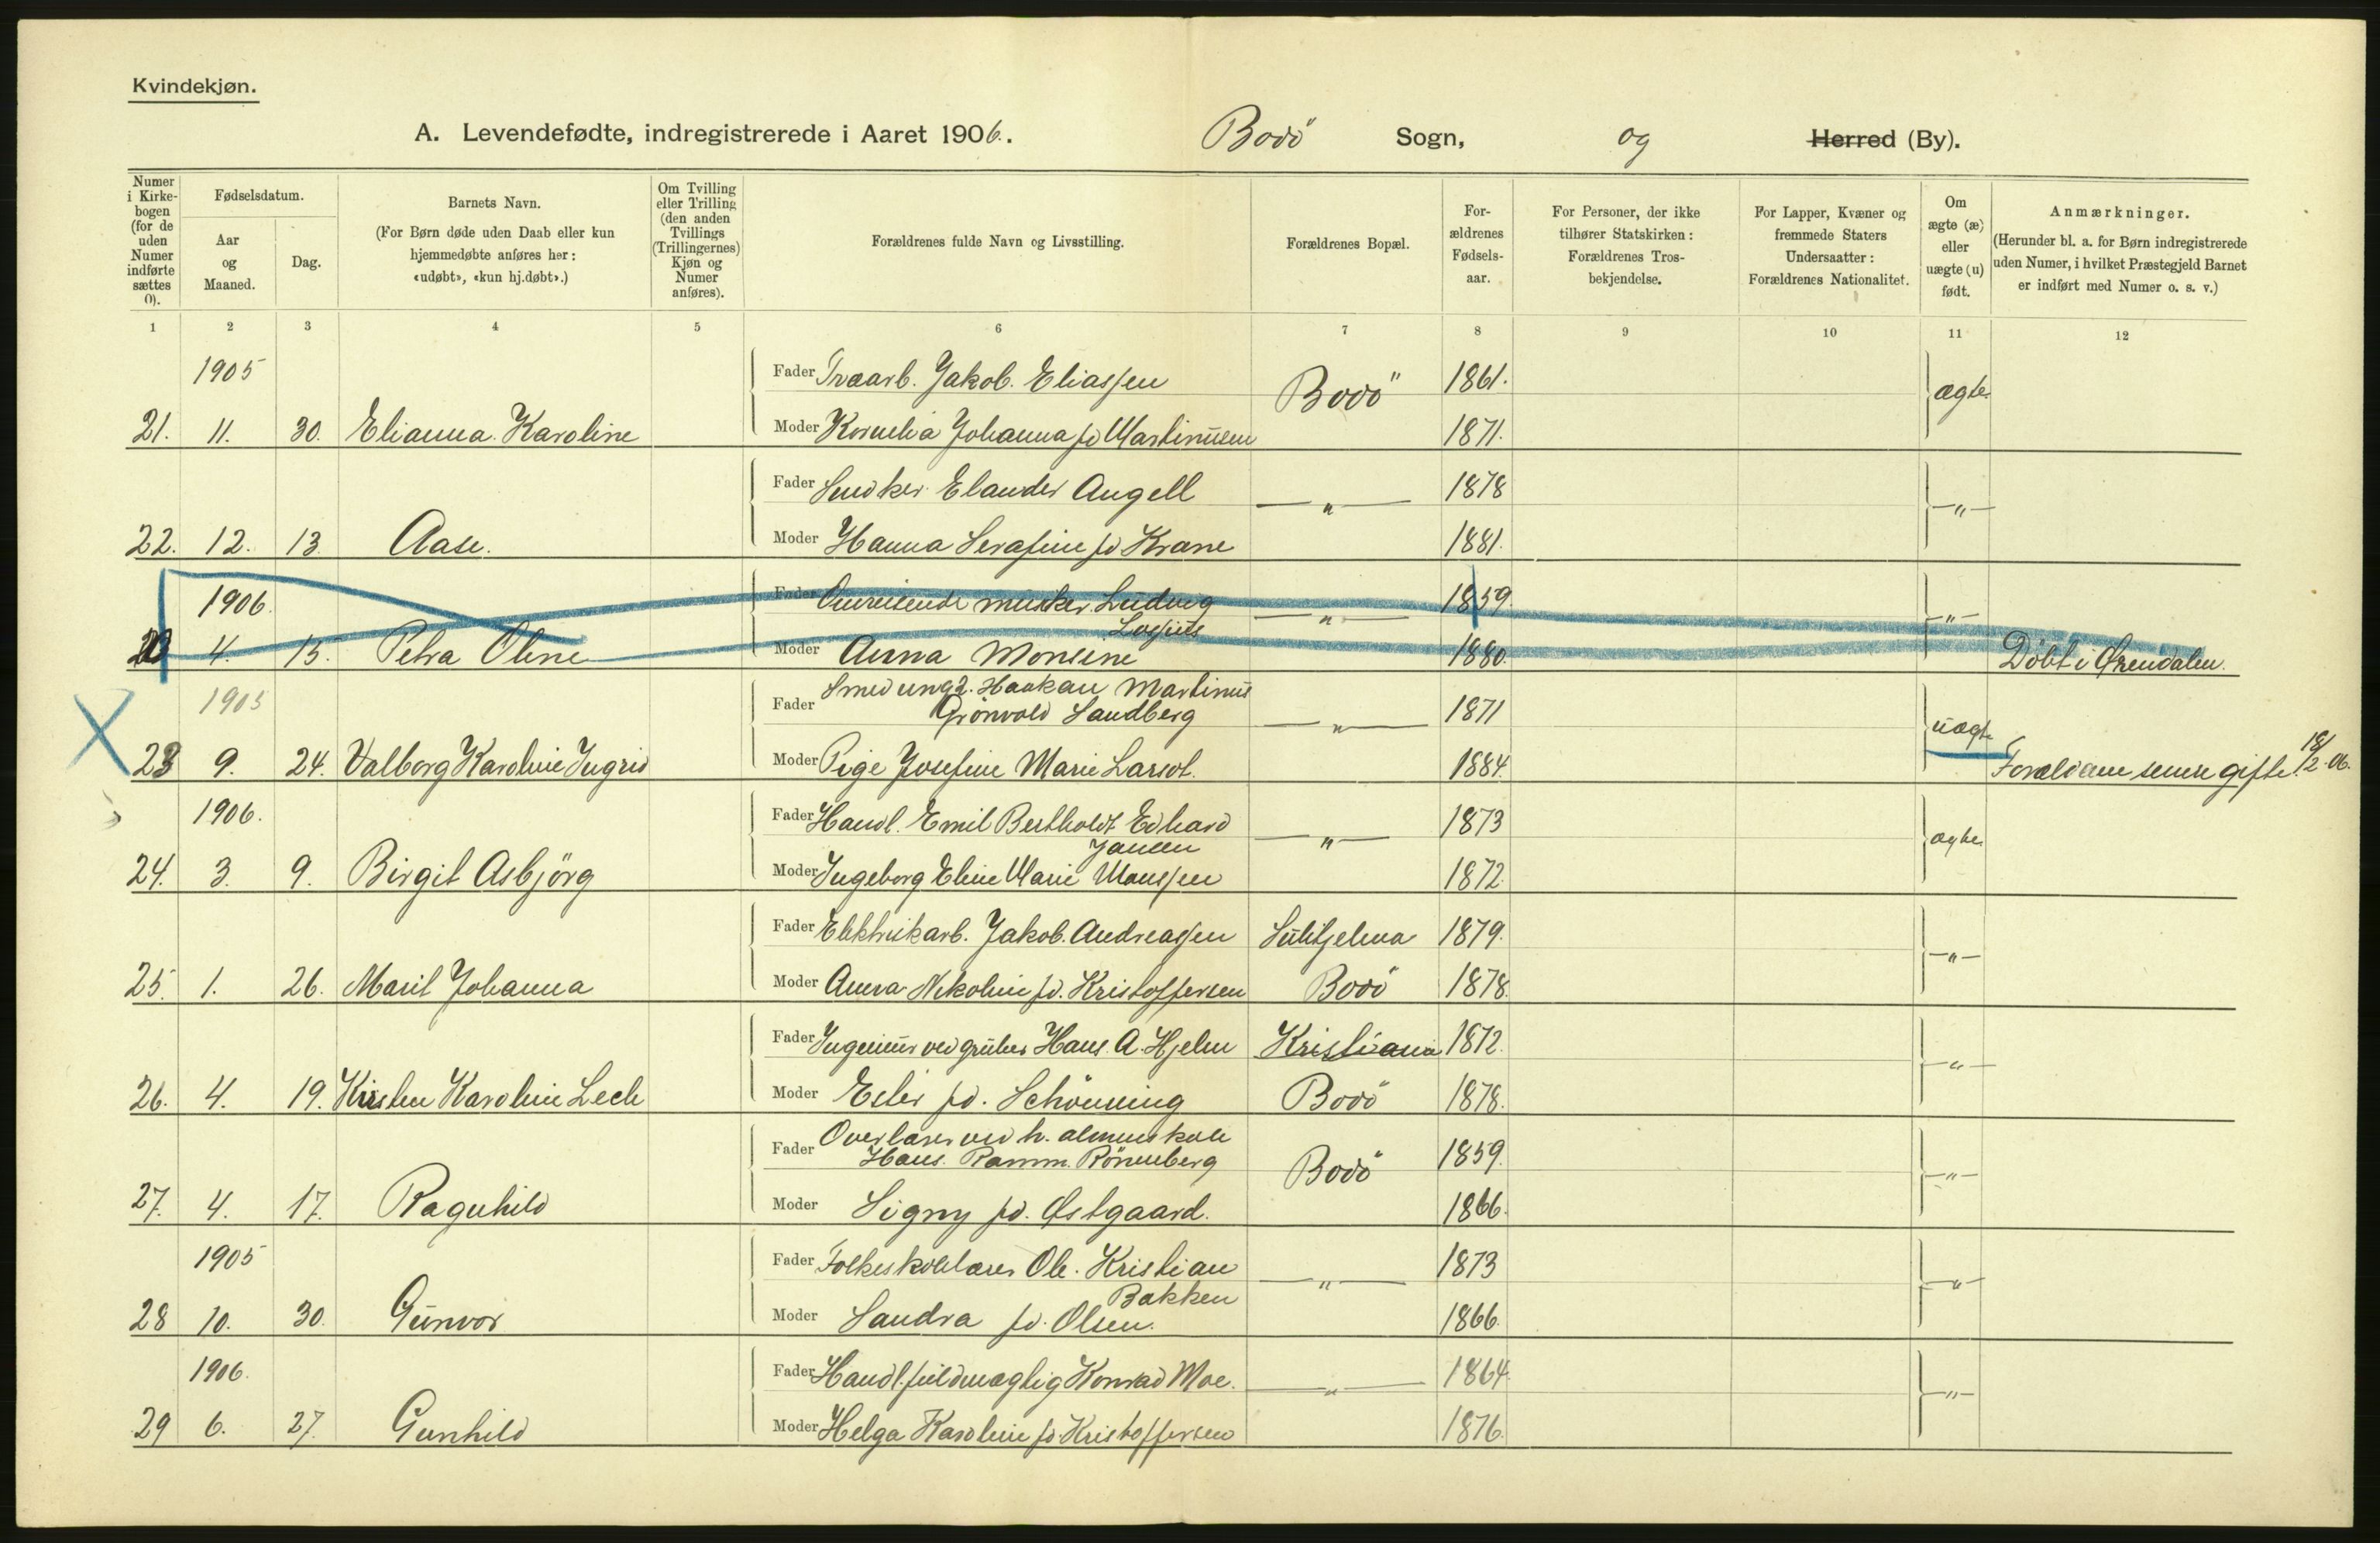 Kvindekjøn.
A. Levendefødte, indregistrerede i Aaret 1906. Bodö Sogn, og Herred (By).
Numer i Kirkebogen (for de uden Numer indførte sættes 0).
Fødselsdatum.
Aar og Maaned.
Dag.
Barnets Navn.
(For Børn døde uden Daab eller kun hjemmedøbte anføres her: «udøbt», «kun hj.døbt».)
Om Tvilling eller Trilling (den anden Tvillings (Trillingernes) Kjøn og Numer anføres).
Forældrenes fulde Navn og Livsstilling.
Forældrenes Bopæl.
Forældrenes Fødselsaar.
For Personer, der ikke tilhører Statskirken: Forældrenes Trosbekjendelse.
For Lapper, Kvæner og fremmede Staters Undersaatter: Forældrenes Nationalitet.
Om ægte (æ) eller uægte (u) født.
Anmærkninger.
(Herunder bl. a. for Børn indregistrerede uden Numer, i hvilket Præstegjeld Barnet er indført med Numer o. s. v.)
1 2 3 4 5 6 7 8 9 10 11 12
1905 Fader Træarb. Jakob Eliassen Bodö 1861. ægte
21. 11. 30. Elianna Karoline Moder Kornelia Johanna fd Martinusen 1871.
Fader Snedker Elander Angell — " — 1878 — " —
22. 12. 13. Aase. Moder Hanna Serafine fd Krane 1881.
1906. Fader Omreisende musiker Ludvig — " — 1859. — " —
4. 15. Petra Oline Moder Anna Monsine 1880. Döbt i
1905 Fader Smed ungk. Haakan Martinus
Grönvold Sandberg — " — 1871 uægte
23 9. 24. Valborg Karoline Ingrid Moder Pige Josefine Marie Larsdt. 1884. Forældrene senere gifte 18/2.06.
1906. Fader Handl. Emil Bertholdt Edhard — " — 1873 ægte
Jansen
24. 3. 9. Birgit Asbjörg Moder Ingeborg Eline Marie Monssen 1872.
Fader Elektrikarb. Jakob Andreassen Sulitjelma 1879. — " —
25. 1. 26. Marit Johanna Moder Anna Nikoline fd. Kristoffersen Bodö 1878.
Fader Ingeniør ved gruber Hans A. Hjelm Kristiania 1872. — " —
26. 4. 19. Kirsten Karoline Lech Moder Ester fd. Schönning Bodö 1878.
Fader Overlærer ved h. almenskole
Hans Ramm Rönneberg Bodö 1859. — " —
27. 4. 17. Ragnhild Moder Signy fd. Østgaard. 1866.
1905 Fader Folkeskolelærer Ole Kristian — " — 1873 — " —
Bakken
28 10. 30. Gunvor Moder Sandra fd. Olsen. 1866.
1906. Fader Handl.fuldmægtig Konrad Moe. — " — 1864. — " —
29 6. 27. Gunhild Moder Helga Karoline fd. Kristoffersen 1876.